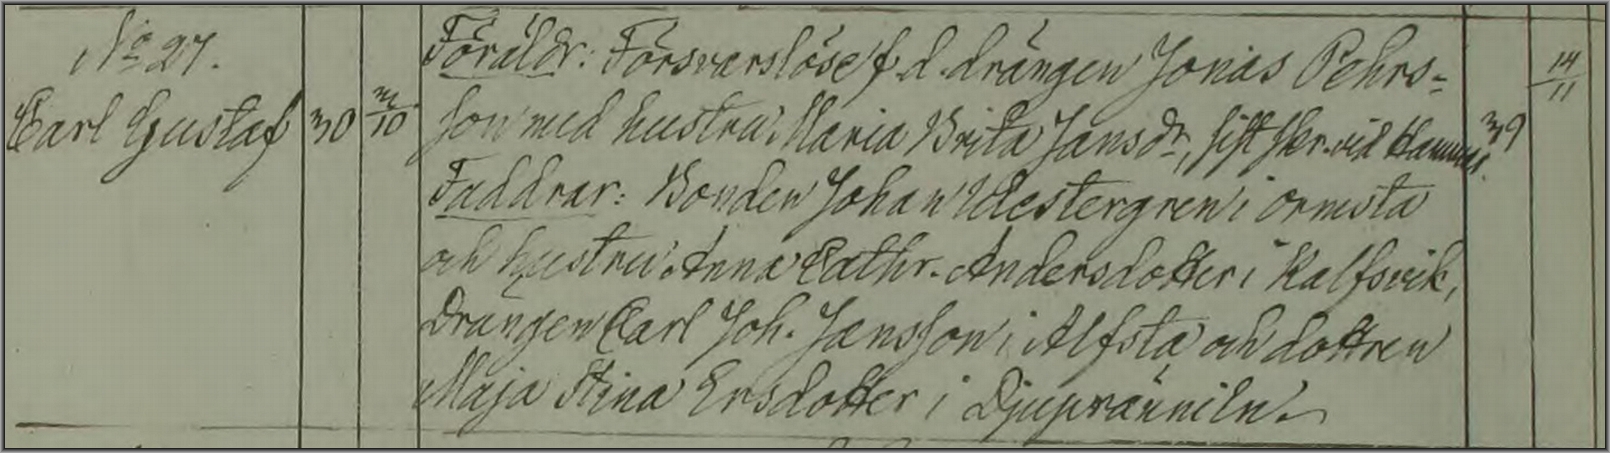 No 27.
Carl Gustaf 30 31/10
Föräldr: Försvarslöse f.d. drängen Jonas Pehrs-
son med hustru Maria Brita Jansdr, sist skr. vid Hammar. 39 14/11
Faddrar: Bonden Johan Westergren i Ormsta
och hustru Anna Cathr. Andersdotter i Kalfsvik,
Drängen Carl Joh. Jansson i Alfsta och dottren
Maja Stina Ersdotter i